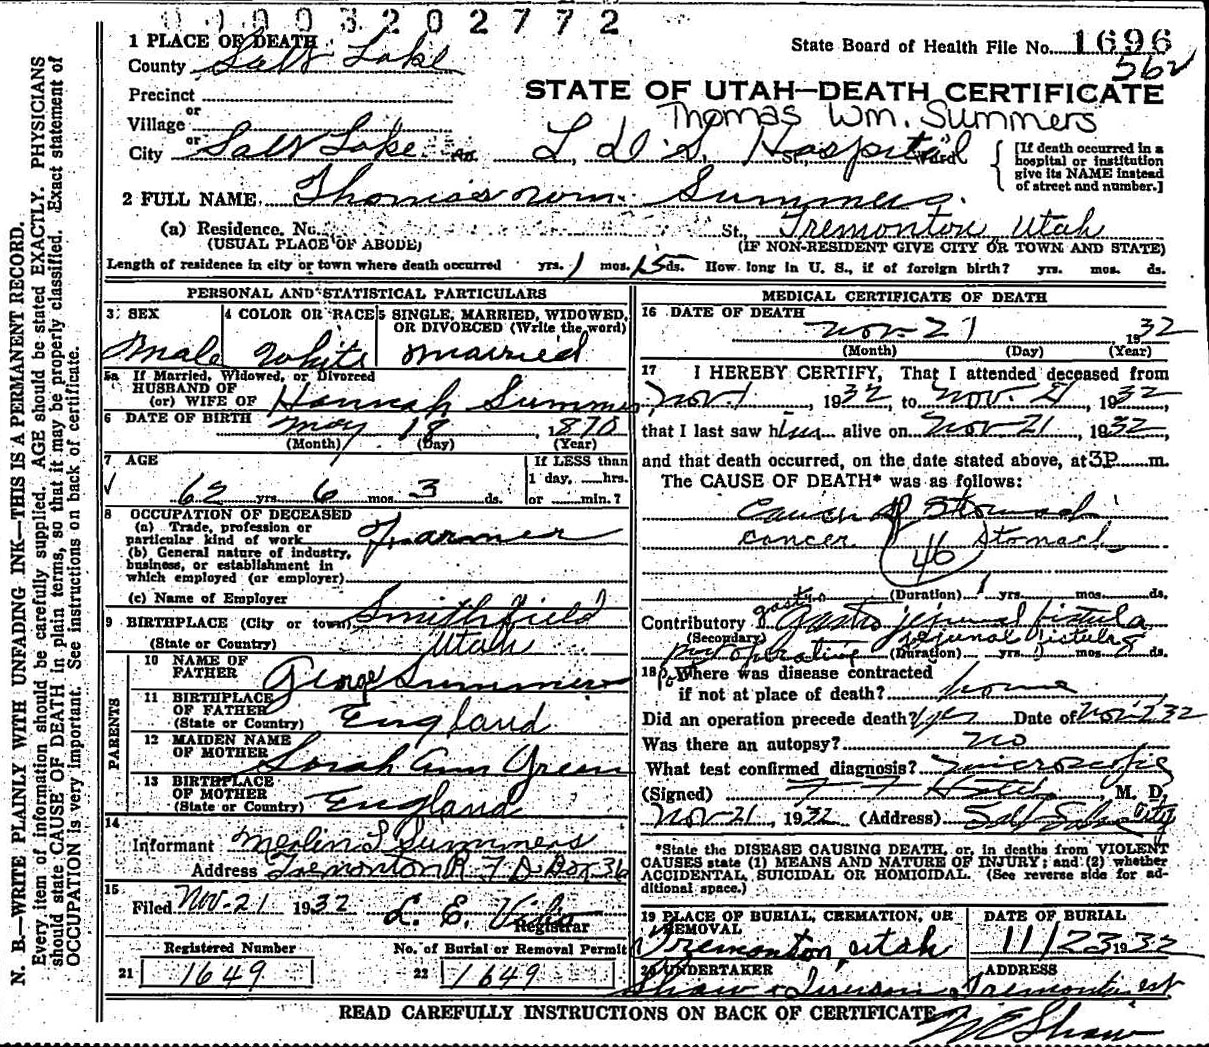 0003202772
1 PLACE OF DEATH
County Salt Lake
State Board of Health File No. 1696
562
STATE OF UTAH—DEATH CERTIFICATE
Thomas Wm. Summers
Precinct
or
Village
or
City Salt Lake No. L. D. S. Hospital St., Ward
[If death occurred in a hospital or institution give its NAME instead of street and number.]
2 FULL NAME Thomas Wm. Summers
(a) Residence. No. St., Tremonton, Utah
(USUAL PLACE OF ABODE) (IF NON-RESIDENT GIVE CITY OR TOWN AND STATE)
Length of residence in city or town where death occurred yrs. 1 mos. 15 ds. How long in U. S., if of foreign birth? yrs. mos. ds.
PERSONAL AND STATISTICAL PARTICULARS
3 SEX
Male
4 COLOR OR RACE
White
5 SINGLE, MARRIED, WIDOWED, OR DIVORCED (Write the word)
Married
5a If Married, Widowed, or Divorced
HUSBAND OF
(or) WIFE OF Hannah Summers
6 DATE OF BIRTH May 18, 1870
(Month) (Day) (Year)
7 AGE
62 yrs. 6 mos. 3 ds.
If LESS than
1 day, hrs.
or min.?
8 OCCUPATION OF DECEASED
(a) Trade, profession or
particular kind of work Farmer
(b) General nature of industry,
business, or establishment in
which employed (or employer)
(c) Name of Employer
9 BIRTHPLACE (City or town) Smithfield
(State or Country) Utah
PARENTS
10 NAME OF FATHER George Summers
11 BIRTHPLACE OF FATHER
(State or Country) England
12 MAIDEN NAME OF MOTHER Sarah Ann Green
13 BIRTHPLACE OF MOTHER
(State or Country) England
14
Informant Merlin S Summers
Address Tremonton R F D Box 36
15
Filed Nov-21 1932 L. E.
Registrar
Registered Number
21 1649
No. of Burial or Removal Permit
22 1649
MEDICAL CERTIFICATE OF DEATH
16 DATE OF DEATH
Nov-21 1932
(Month) (Day) (Year)
17 I HEREBY CERTIFY, That I attended deceased from
Nov-1, 1932, to Nov. 21, 1932,
that I last saw him alive on Nov-21, 1932,
and that death occurred, on the date stated above, at 3P m.
The CAUSE OF DEATH* was as follows:
Cancer of Stomach
cancer Stomach
46
(Duration) 1 yrs. mos. ds.
gastro
Contributory Gastro jejunal fistula
(Secondary) jejunal fistula
post operative (Duration) yrs. mos. 8 ds.
18 Where was disease contracted
if not at place of death? home
Did an operation precede death? yes Date of Nov-7 32
Was there an autopsy? no
What test confirmed diagnosis? microscopic
(Signed) , M. D.
Nov-21, 1932 (Address) Salt Lake City
*State the DISEASE CAUSING DEATH, or, in deaths from VIOLENT
CAUSES state (1) MEANS AND NATURE OF INJURY; and (2) whether
ACCIDENTAL, SUICIDAL OR HOMICIDAL. (See reverse side for ad-
ditional space.)
19 PLACE OF BURIAL, CREMATION, OR REMOVAL
Tremonton, Utah
DATE OF BURIAL
11/23 1932
20 UNDERTAKER
Shaw & Iverson
ADDRESS
Tremonton, Ut
READ CAREFULLY INSTRUCTIONS ON BACK OF CERTIFICATE
Shaw
N. B.—WRITE PLAINLY WITH UNFADING INK—THIS IS A PERMANENT RECORD.
Every item of information should be carefully supplied. AGE should be stated EXACTLY. PHYSICIANS
should state CAUSE OF DEATH in plain terms, so that it may be properly classified. Exact statement of
OCCUPATION is very important. See instructions on back of certificate.